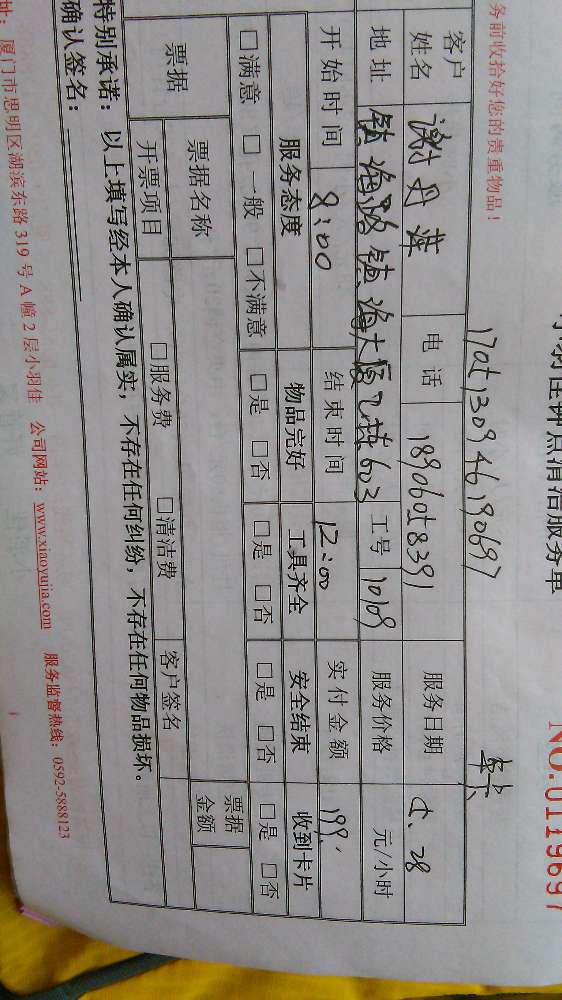 小羽佳钟点清洁服务单
NO.0119697
务前收拾好您的贵重物品！
客户姓名 谢丹萍 电话 服务日期
地址 镇海路镇海大厦乙栋603 工号 1019 服务价格 元/小时
开始时间 8:00 结束时间 12:00 实付金额 199.
服务态度 物品完好 工具齐全 安全结束 收到卡片
□满意 □一般 □不满意 □是 □否 □是 □否 □是 □否 □是 □否
票据 票据名称 票据金额
开票项目 □服务费 □清洁费 客户签名
特别承诺： 以上填写经本人确认属实，不存在任何纠纷，不存在任何物品损坏。
确认签名：
址：厦门市思明区湖滨东路 319 号 A 幢 2 层小羽佳 公司网站：www.xiaoyujia.com 服务监督热线：0592-5888123